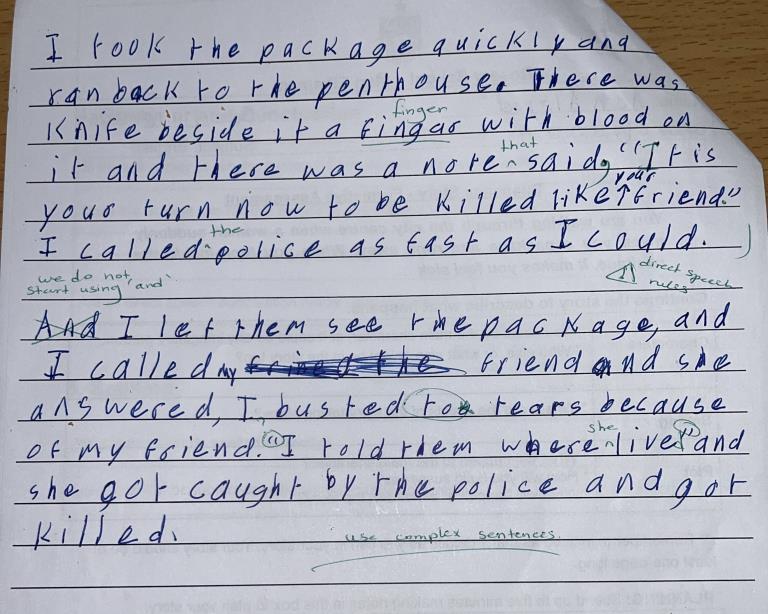 I took the package quickly and
ran back to the penthouse. There was
finger
Knife beside it a fingar with blood on
that
it and there was a note said, "It is
your
your turn now to be killed like friend."
the
I called police as fast as I could.
we do not
start using 'and'
direct speech
rules
And I let them see the package, and
I called my friend and she
answered, I busted to tears because
she
of my friend. I told them where lives and
she got caught by the police and got
killed.
use complex sentences.